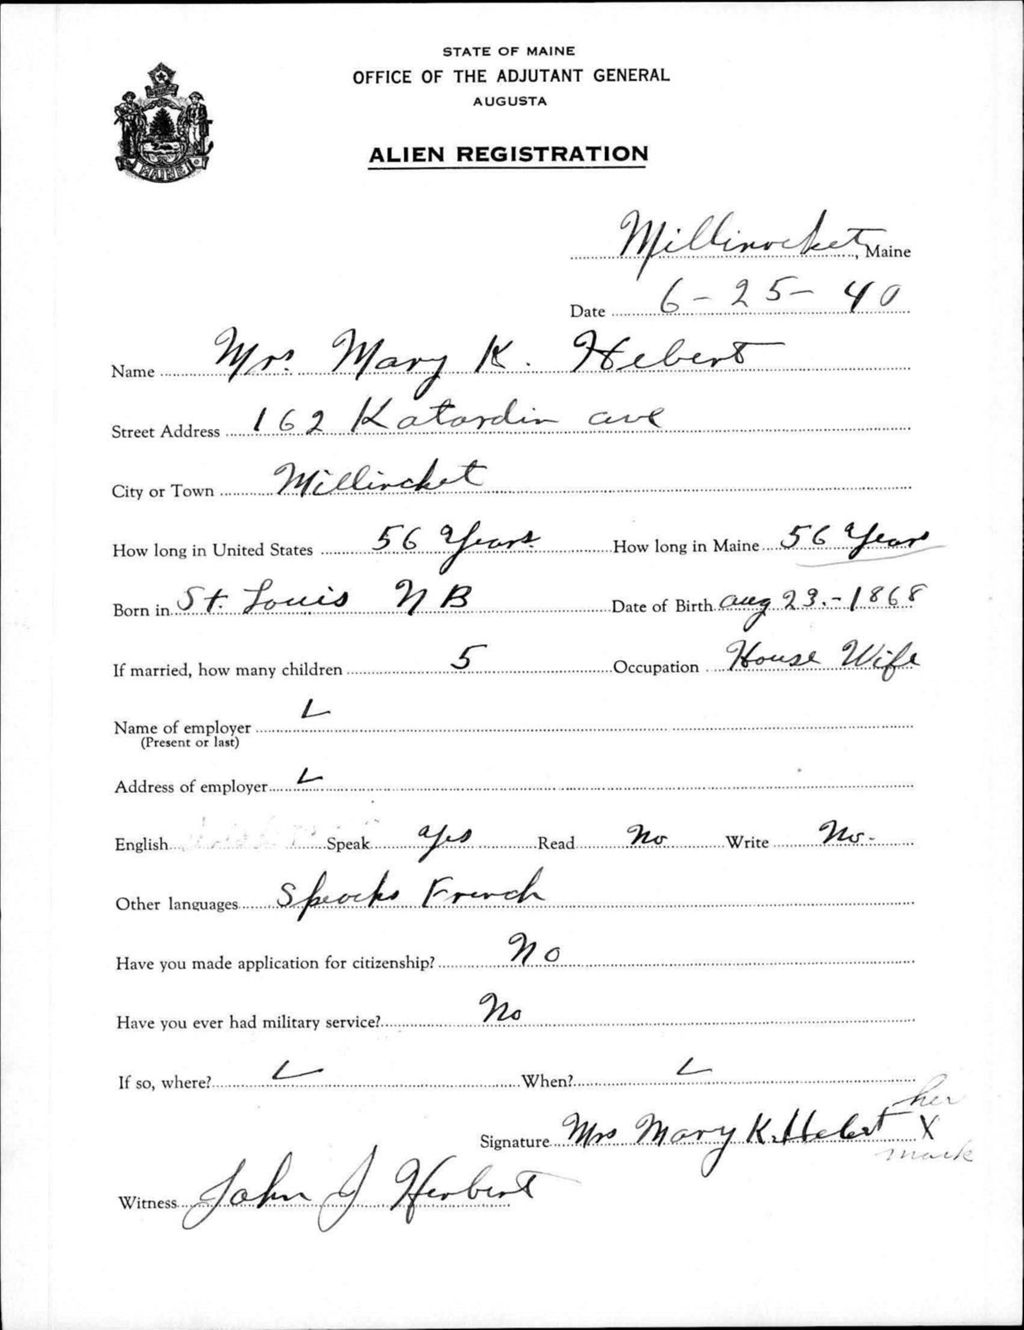 STATE OF MAINE
OFFICE OF THE ADJUTANT GENERAL
AUGUSTA
ALIEN REGISTRATION
MAINE
Millinocket, Maine
Date 6-25-40
Name Mrs. Mary K. Hebert
Street Address 162 Katardin ave
City or Town Millincket
How long in United States 56 Years How long in Maine 56 Years
Born in St. Louis NB Date of Birth Aug 23.-1868
If married, how many children 5 Occupation House Wife
Name of employer
(Present or last)
Address of employer
English Speak Yes Read No Write No-
Other languages Speaks French
Have you made application for citizenship? No
Have you ever had military service? No
If so, where? When?
her
Signature Mrs Mary K. Hebert X
mark
Witness John J Herbert